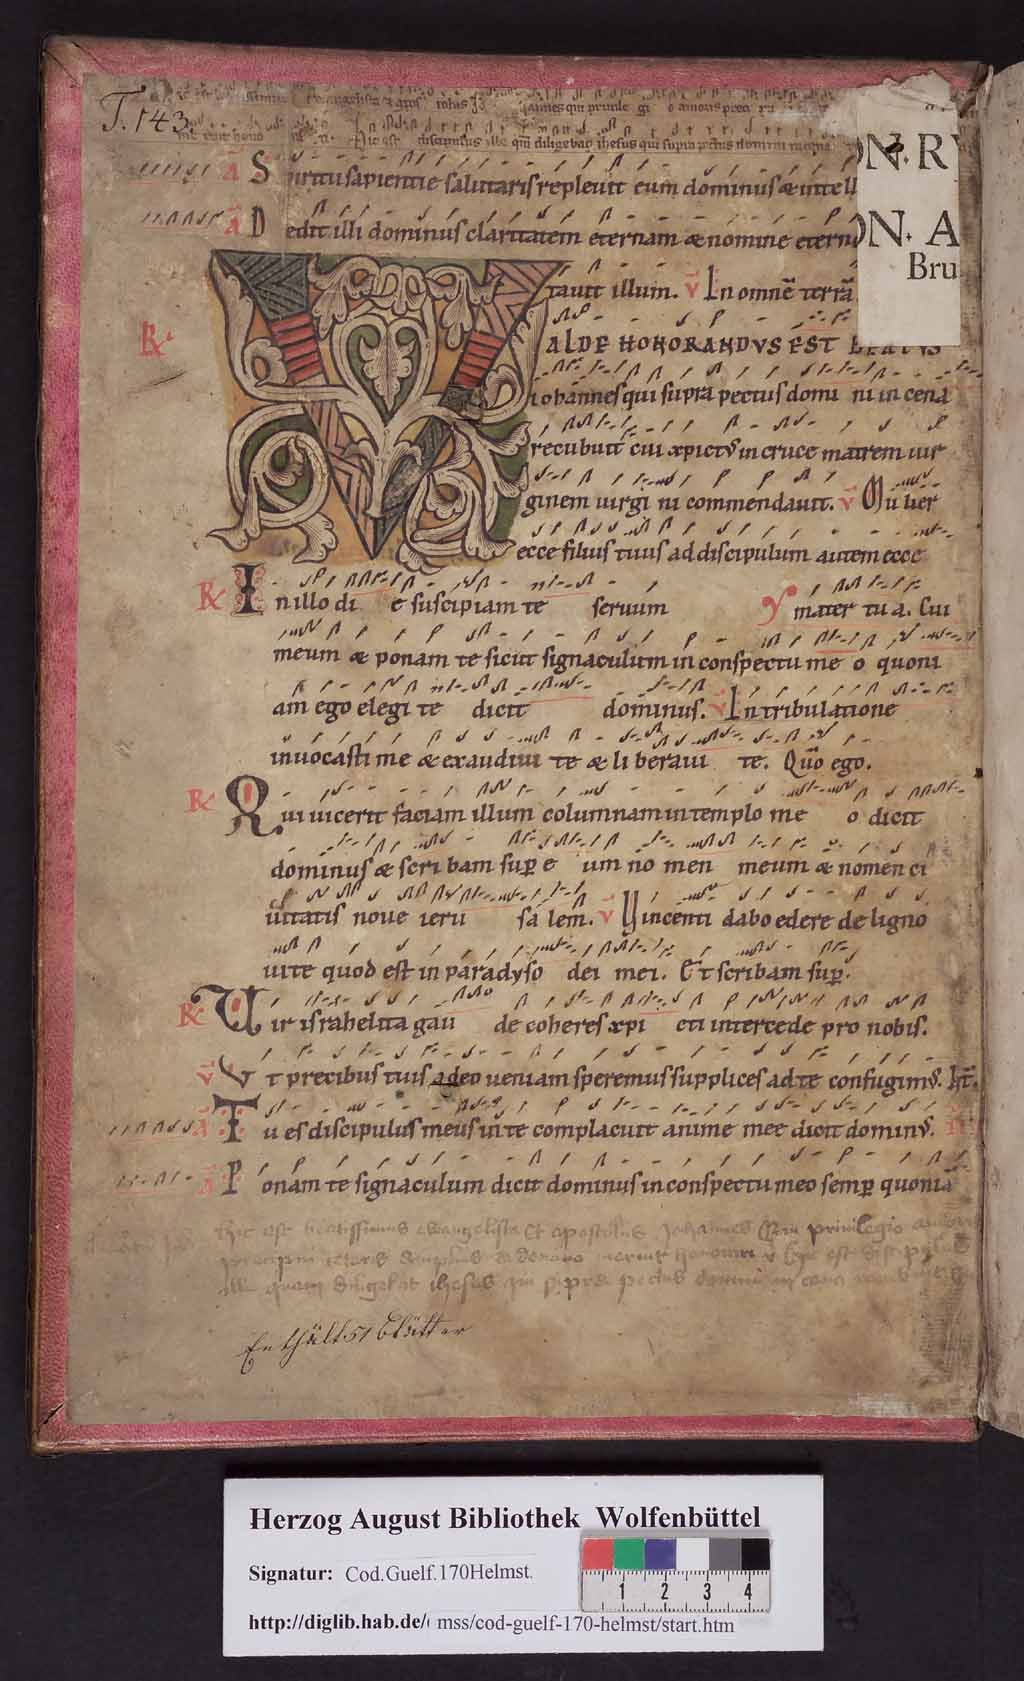 T. 143.
Hic est discipulus ille quē diligebat ihesus qui supra pectus domini
ã Spiritu sapientie salutaris repleuit eum dominus & intell
ã Dedit illi dominus claritatem eternam & nomine eterno
ON. RY
ON. A
Bru
tauit illum. v̄ In omnē terrā
R̷ VALDE HONORANDVS EST BEATVS
iohannes qui supra pectus domi ni in cena
recubuit cui xpictꝰ in cruce matrem uir
ginem uirgi ni commendauit. v̄ Mu lier
ecce filius tuus ad discipulum autem ecce
R̷ In illo di e suscipiam te seruum mater tua. Cui
meum & ponam te sicut signaculum in conspectu me o quoni
am ego elegi te dicit dominus. v̄ In tribulatione
inuocasti me & exaudiui te & li beraui te. Quō ego.
R̷ Qui uicerit faciam illum columnam in templo me o dicit
dominus & scri bam suꝑ e um no men meum & nomen ci
uitatis noue ieru sa lem. v̄ Vincenti dabo edere de ligno
uite quod est in paradyso dei mei. Et scribam suꝑ.
R̷ Vir israhelita gau de coheres xpi cti intercede pro nobis.
v̄ Vt precibus tuis adeo ueniam speremus supplices ad te confugimꝰ.
ã Tu es discipulus meus in te complacuit anime mee dicit dominꝰ.
ã Ponam te signaculum dicit dominus in conspectu meo semꝑ quoniā
Hic est beatissimus ewangelista et apostolus Johannes qui priuilegio amoris
precipui ceteris
ille quem diligebat ihesus qui supra pectus domini in cena
Enthält 51 Blätter
Herzog August Bibliothek Wolfenbüttel
Signatur: Cod.Guelf.170Helmst.
1 2 3 4
http://diglib.hab.de/ mss/cod-guelf-170-helmst/start.htm